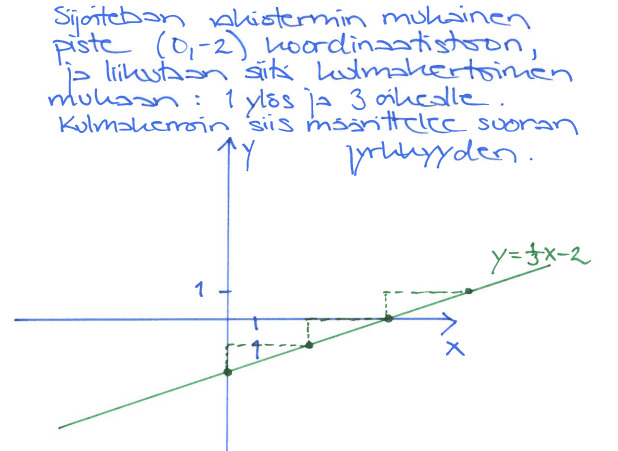 Sijoitetaan vakiotermin mukainen
piste (0,-2) koordinaatistoon,
ja liikutaan siitä kulmakertoimen
mukaan: 1 ylös ja 3 oikealle.
Kulmakerroin siis määrittelee suoran
jyrkkyyden.
y
y=1/3x-2
1
1
x